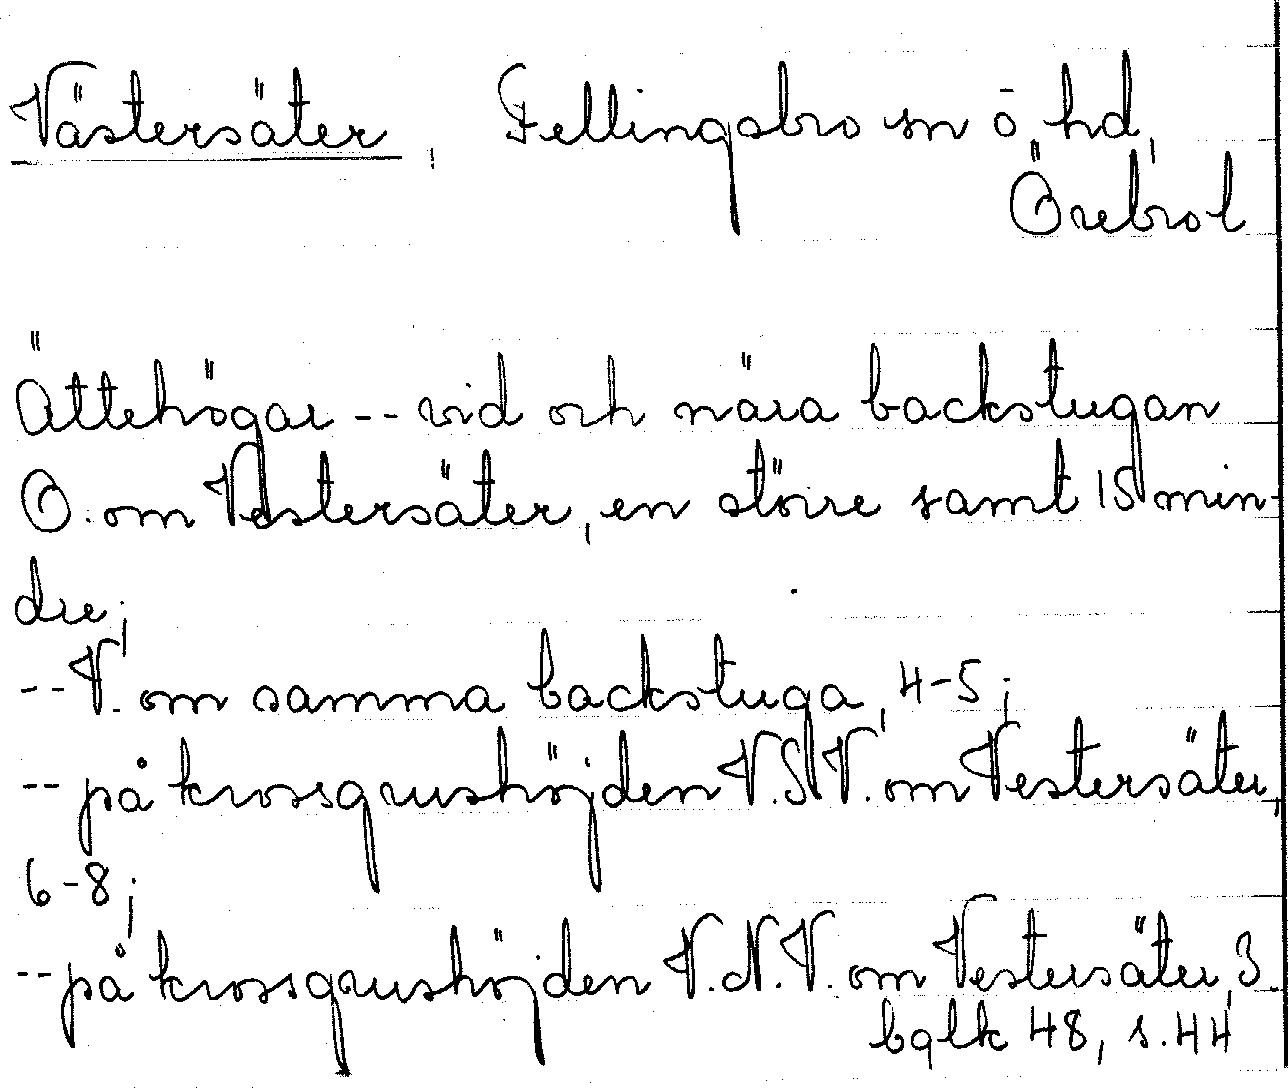 Västersäter, Fellingsbro sn ö hd,
Örebro l
Ättehögar -- vid och nära backstugan
O. om Vestersäter, en större samt 15 min-
dre;
-- V. om samma backstuga, 4-5;
-- på krossgrushöjden V.S.V. om Vestersäter,
6-8;
-- på krossgrushöjden V.N.V. om Vestersäter, 3.
bglk 48, s. 44